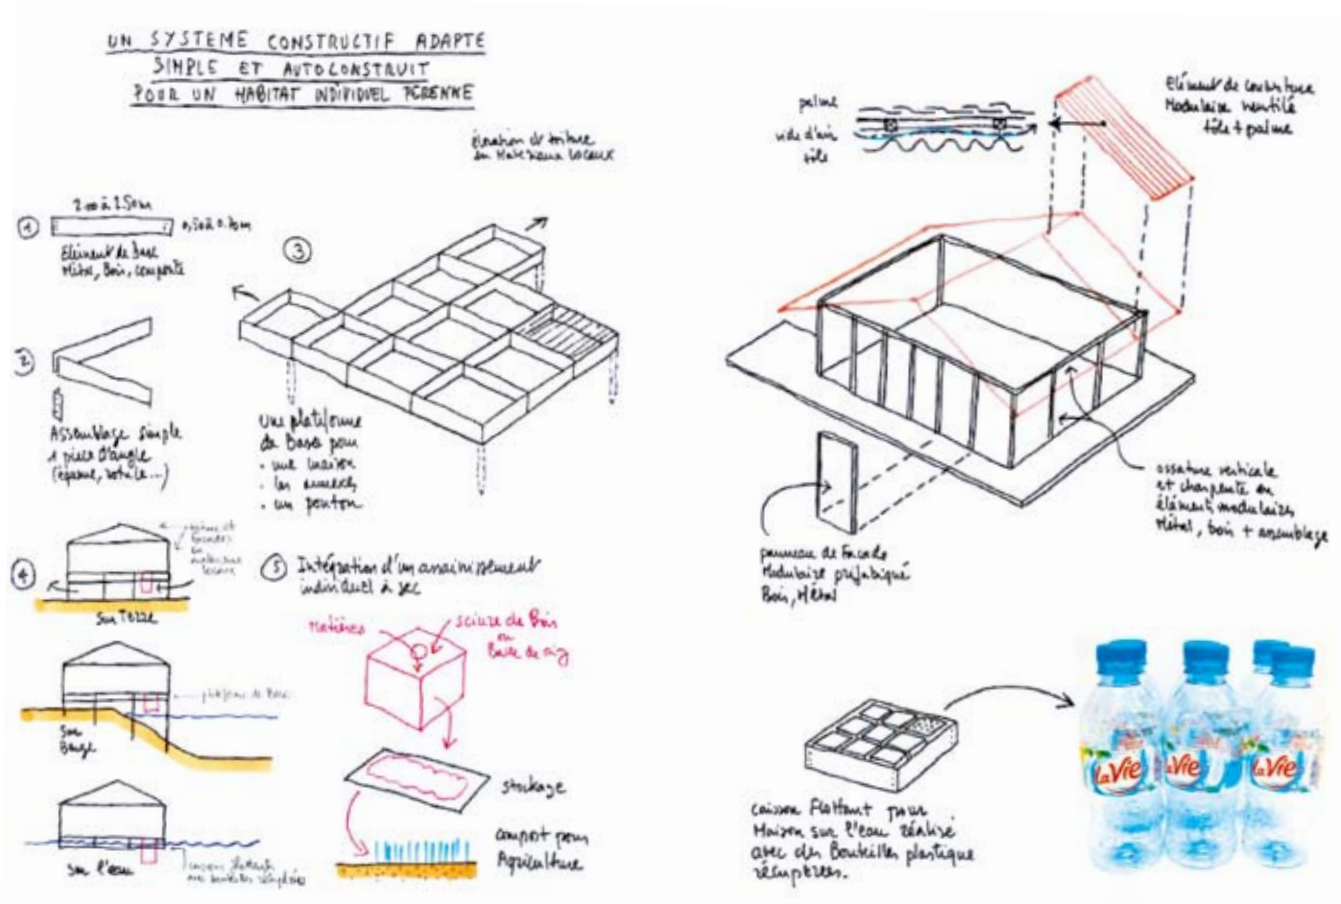 UN SYSTEME CONSTRUCTIF ADAPTE
SIMPLE ET AUTOCONSTRUIT
POUR UN HABITAT INDIVIDUEL PERENNE
élévation et toiture
en Matériaux locaux
1
2.00 à 2.50m
0,50 à 0.70m
Elément de base
Métal, Bois, composite
2
Assemblage simple
1 pièce d'angle
(équerre, rotule...)
3
Une plateforme
de Base pour
. une maison
. les annexes
. un ponton
4
toiture et
façades
en
matériaux
locaux
Sur Terre
plateforme de Base
Sur
Berge
Sur l'eau
caissons flottants
avec bouteilles récupérées
5
Intégration d'un assainissement
individuel à sec
Matières
sciure de Bois
ou
Balle de riz
stockage
compost pour
Agriculture
palme
vide d'air
tôle
Elément de couverture
Modulaire ventilé
tôle + palme
ossature verticale
et charpente en
éléments modulaires
Métal, bois + assemblage
panneau de Facade
Modulaire préfabriqué
Bois, Métal
caisson Flottant pour
Maison sur l'eau réalisé
avec des Bouteilles plastique
récupérées.
LaVie
LaVie
LaVie